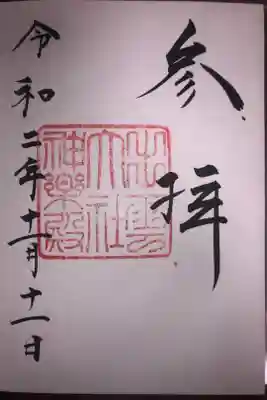 参拝
出雲
大社
神樂殿
令和二年十一月十一日